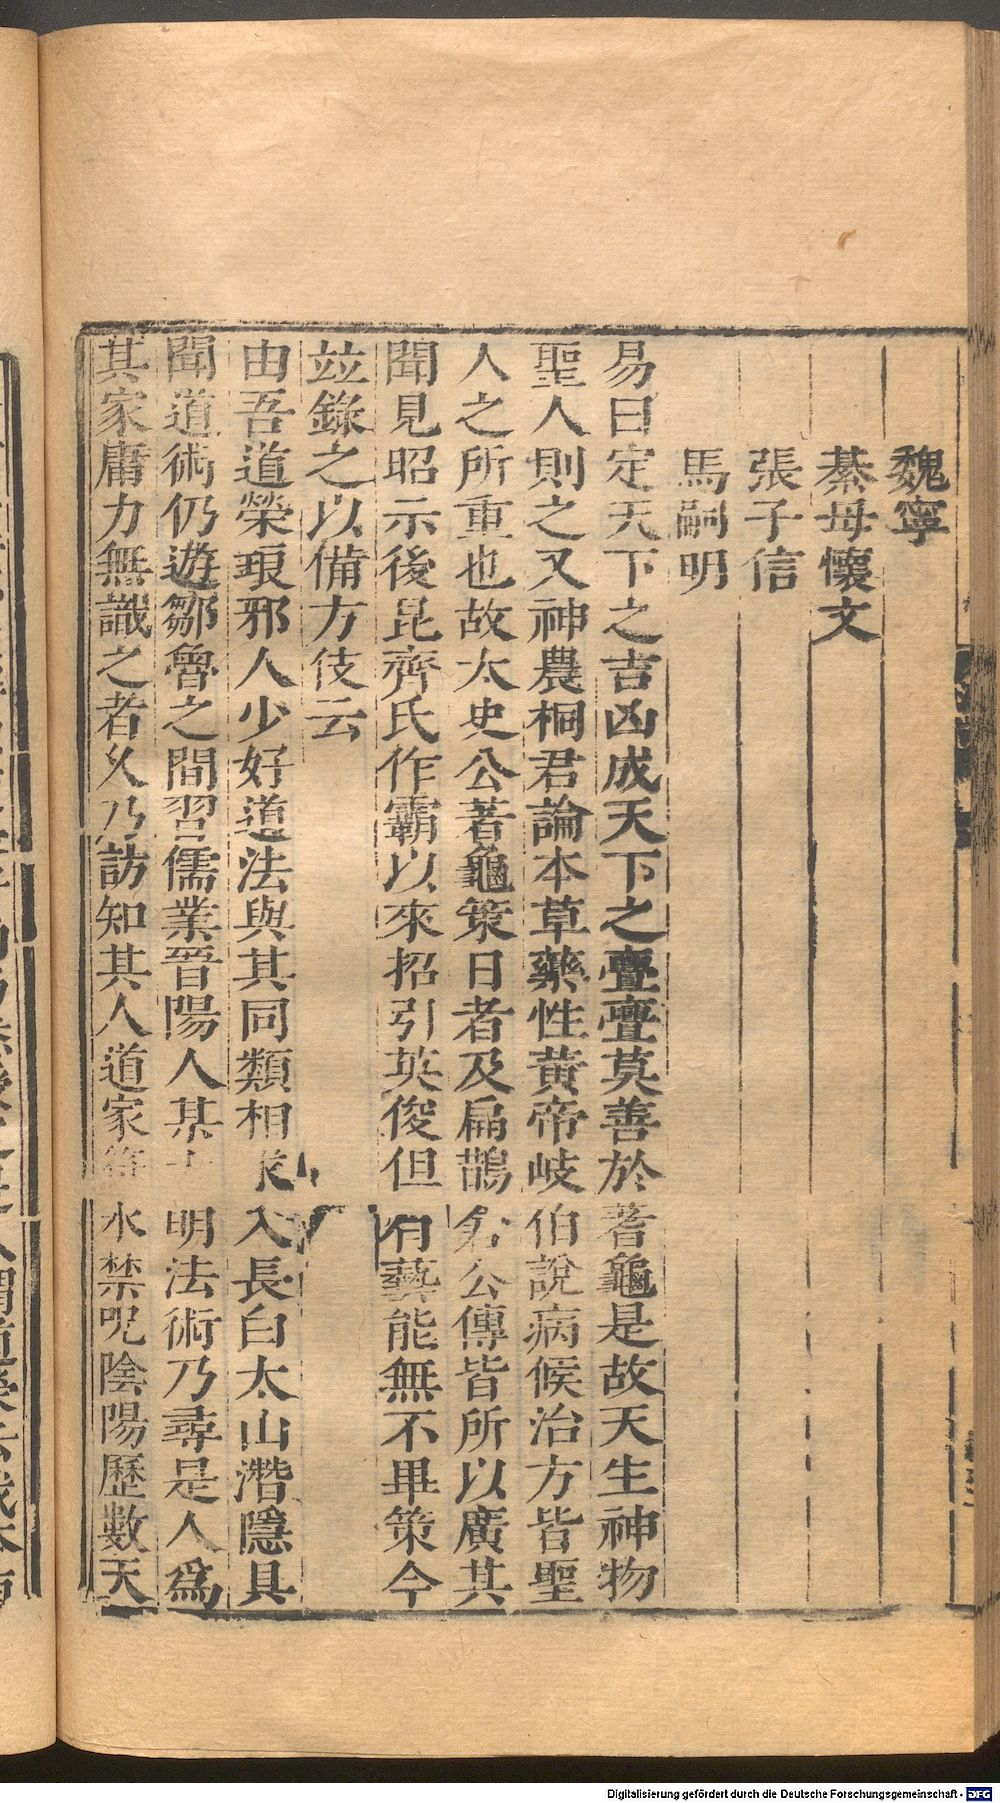 魏寧
綦母懷文
張子信
馬嗣明
易曰定天下之吉凶成天下之亹亹莫善於蓍龜是故天生神物
聖人則之又神農桐君論本草藥性黃帝岐伯說病候治方皆聖
人之所重也故太史公著龜策日者及扁鵲倉公傳皆所以廣其
聞見昭示後昆齊氏作霸以來招引英俊但有藝能無不畢策今
竝錄之以備方伎云
由吾道榮琅邪人少好道法與其同類相求入長白太山潛隱具
聞道術仍遊鄒魯之間習儒業晉陽人某大明法術乃尋是人爲
其家庸力無識之者久乃訪知其人道家符水禁呪陰陽歷數天
Digitalisierung gefördert durch die Deutsche Forschungsgemeinschaft - DFG